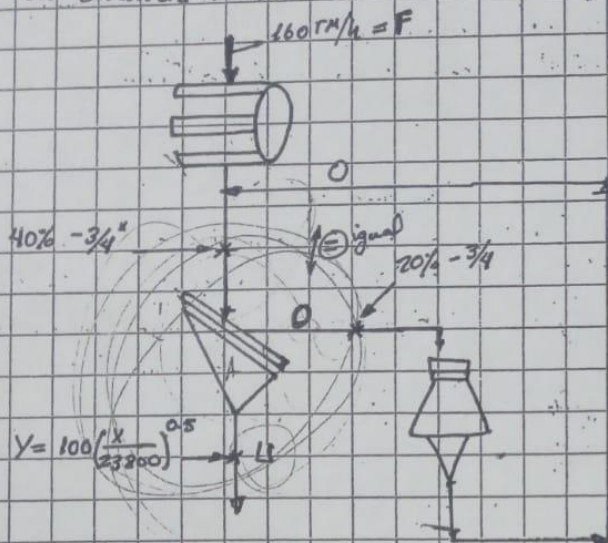 160 TM/h = F
O
40% - 3/4"
= igual
20% - 3/4
O
Y = 100(X/23800)^0.5
U